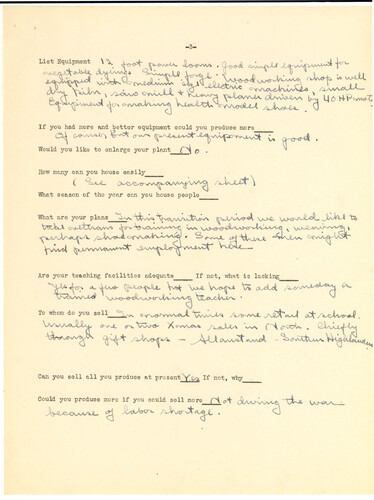 -3-
List Equipment 12 foot power looms. Good simple equipment for
vegetable dyeing. Simple forge. Woodworking shop is well
equipped with medium sized electric machines, small
dry kiln, saw mill & heavy planer driven by 40 HP motor
Equipment for making health model shoes.
If you had more and better equipment could you produce more
Of course, but our present equipment is good.
Would you like to enlarge your plant No.
How many can you house easily
(See accompanying sheet)
What season of the year can you house people
What are your plans In this transition period we would like to
take veterans for training in woodworking, weaving,
perhaps shoemaking. Some of these men might
find permanent employment here.
Are your teaching facilities adequate If not, what is lacking
Yes for a few people but we hope to add someday a
trained woodworking teacher.
To whom do you sell In normal times some retail at school.
Usually one or two Xmas sales in North. Chiefly
through gift shops - Allanstand - Southern Highlanders
Can you sell all you produce at present Yes If not, why
Could you produce more if you could sell more Not during the war
because of labor shortage.